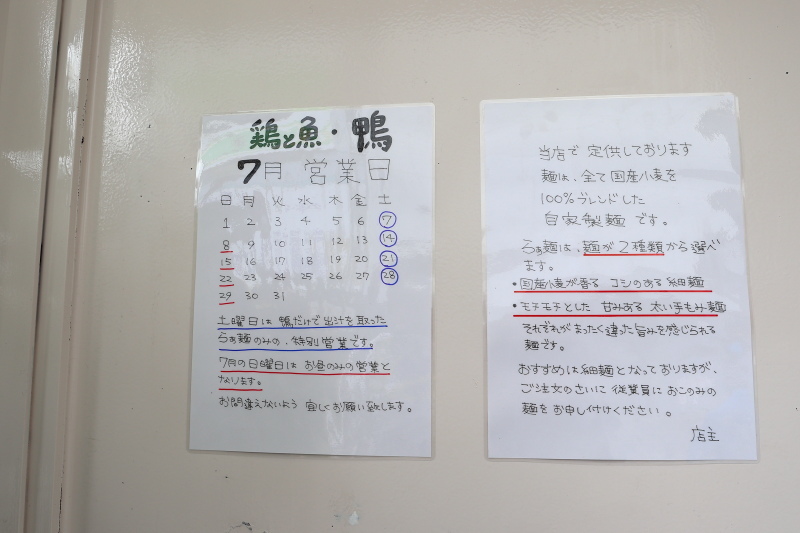 鶏と魚・鴨
7月 営業日
日 月 火 水 木 金 土
1 2 3 4 5 6 7
8 9 10 11 12 13 14
15 16 17 18 19 20 21
22 23 24 25 26 27 28
29 30 31
土曜日は 鴨だけで出汁を取った
らぁ麺のみの、特別営業です。
7月の日曜日は お昼のみの営業と
なります。
お間違えないよう 宜しくお願い致します。
当店で 定供しております
麺は、全て国産小麦を
100%ブレンドした
自家製麺 です。
らぁ麺は、麺が2種類から選べ
ます。
・国産小麦が香る コシのある 細麺
・モチモチとした 甘みある 太い手もみ麺
それぞれがまったく違った旨みを感じられる
麺です。
おすすめは細麺となっておりますが、
ご注文のさいに 従業員に おこのみの
麺を お申し付けください。
店主